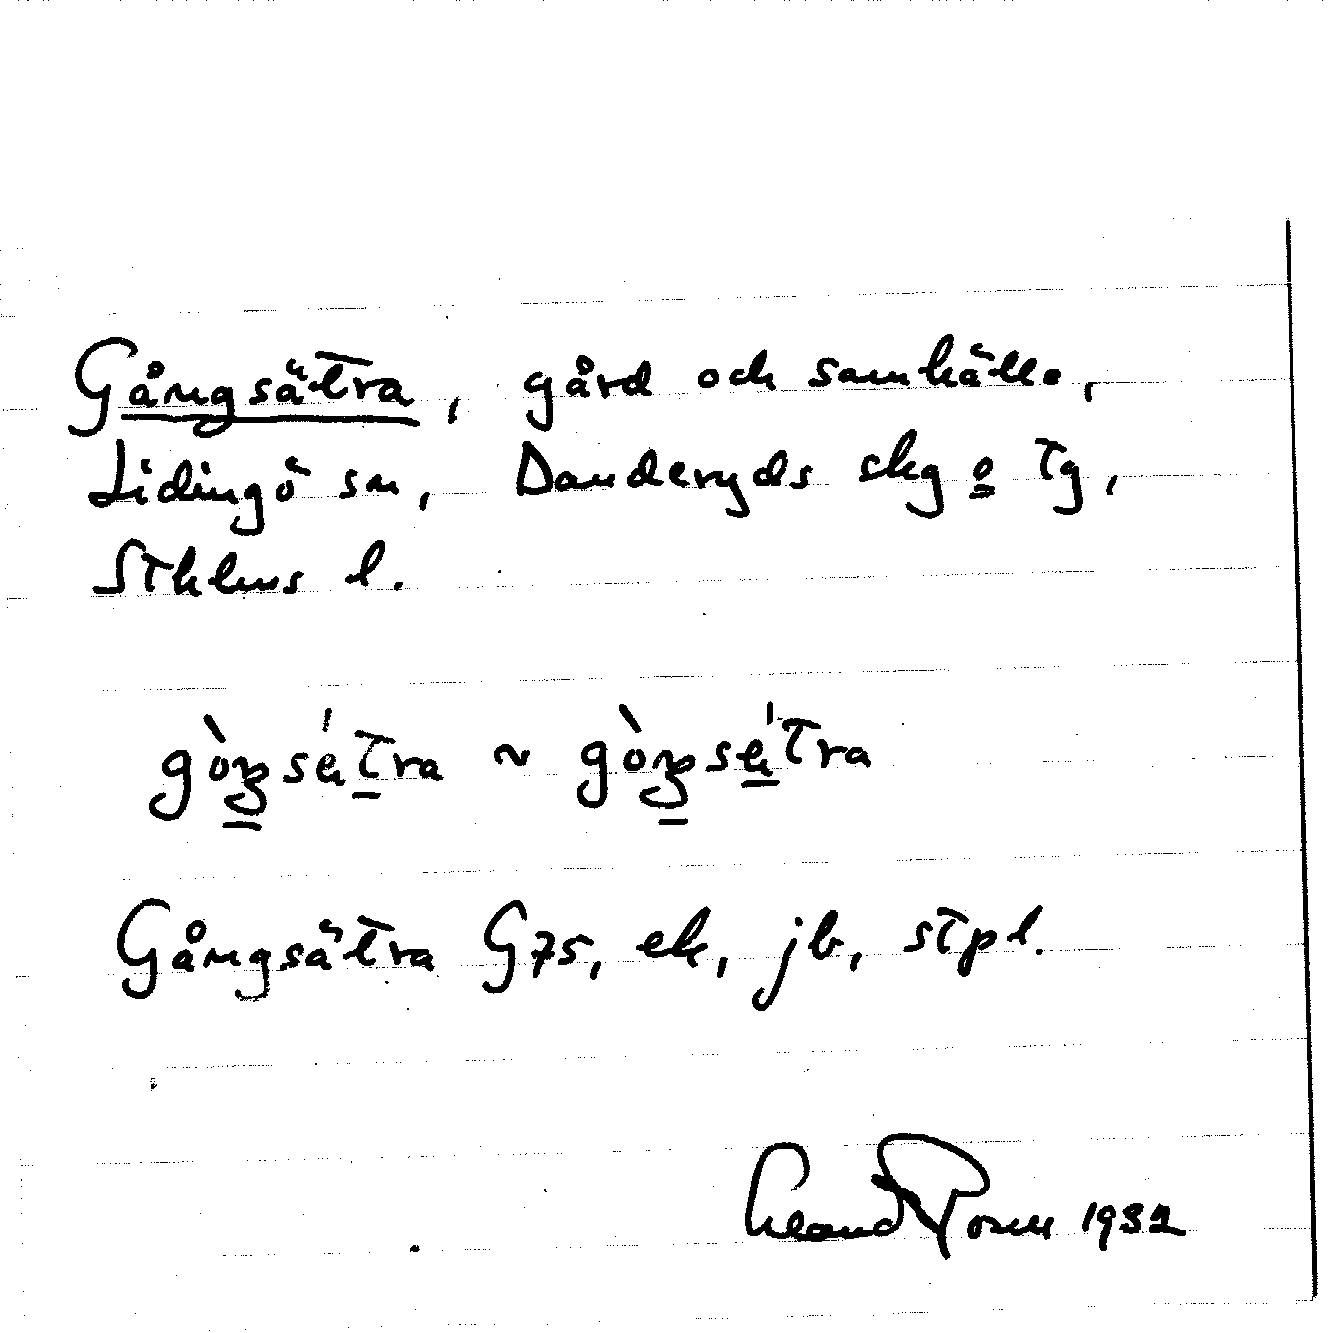 Gångsätra, gård och samhälle,
Lidingö sn, Danderyds skg o Tg,
Sthlms l.
gòŋsétra ~ gòŋsétra
Gångsätra G75, ek, jb, stpl.
1932